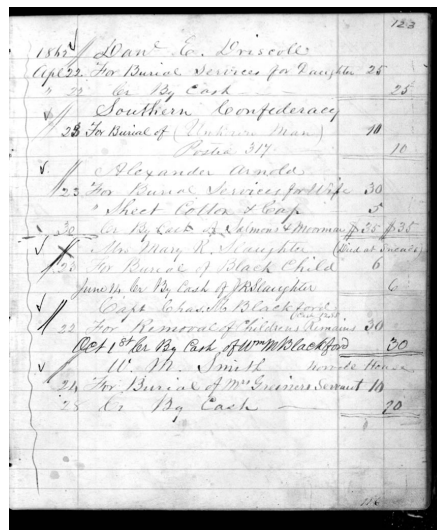 123
1862 Danl E. Driscole
Apl 22 For Burial Services for Daughter 25
" 23 Cr By Cash 25
Southern Confederacy
23 For Burial of (Unknown Man) 10
Posted 317 10
Alexander Arnold
23 For Burial Services for Wife 30
" Sheet Cotton & Cap 5
30 Cr By Cash of Salmons & Moorman $35 $35
Mrs Mary R. Slaughter (Died at
23 For Burial of Black Child 6
June 14 Cr By Cash of JR Slaughter 6
Capt Chas M Blackford
22 For Removal of Childrens Remains 30
Oct 1st Cr By Cash of Wm M Blackford 30
W. M. Smith House
24 For Burial of Mrs Greiners Servant 10
25 Cr By Cash 20